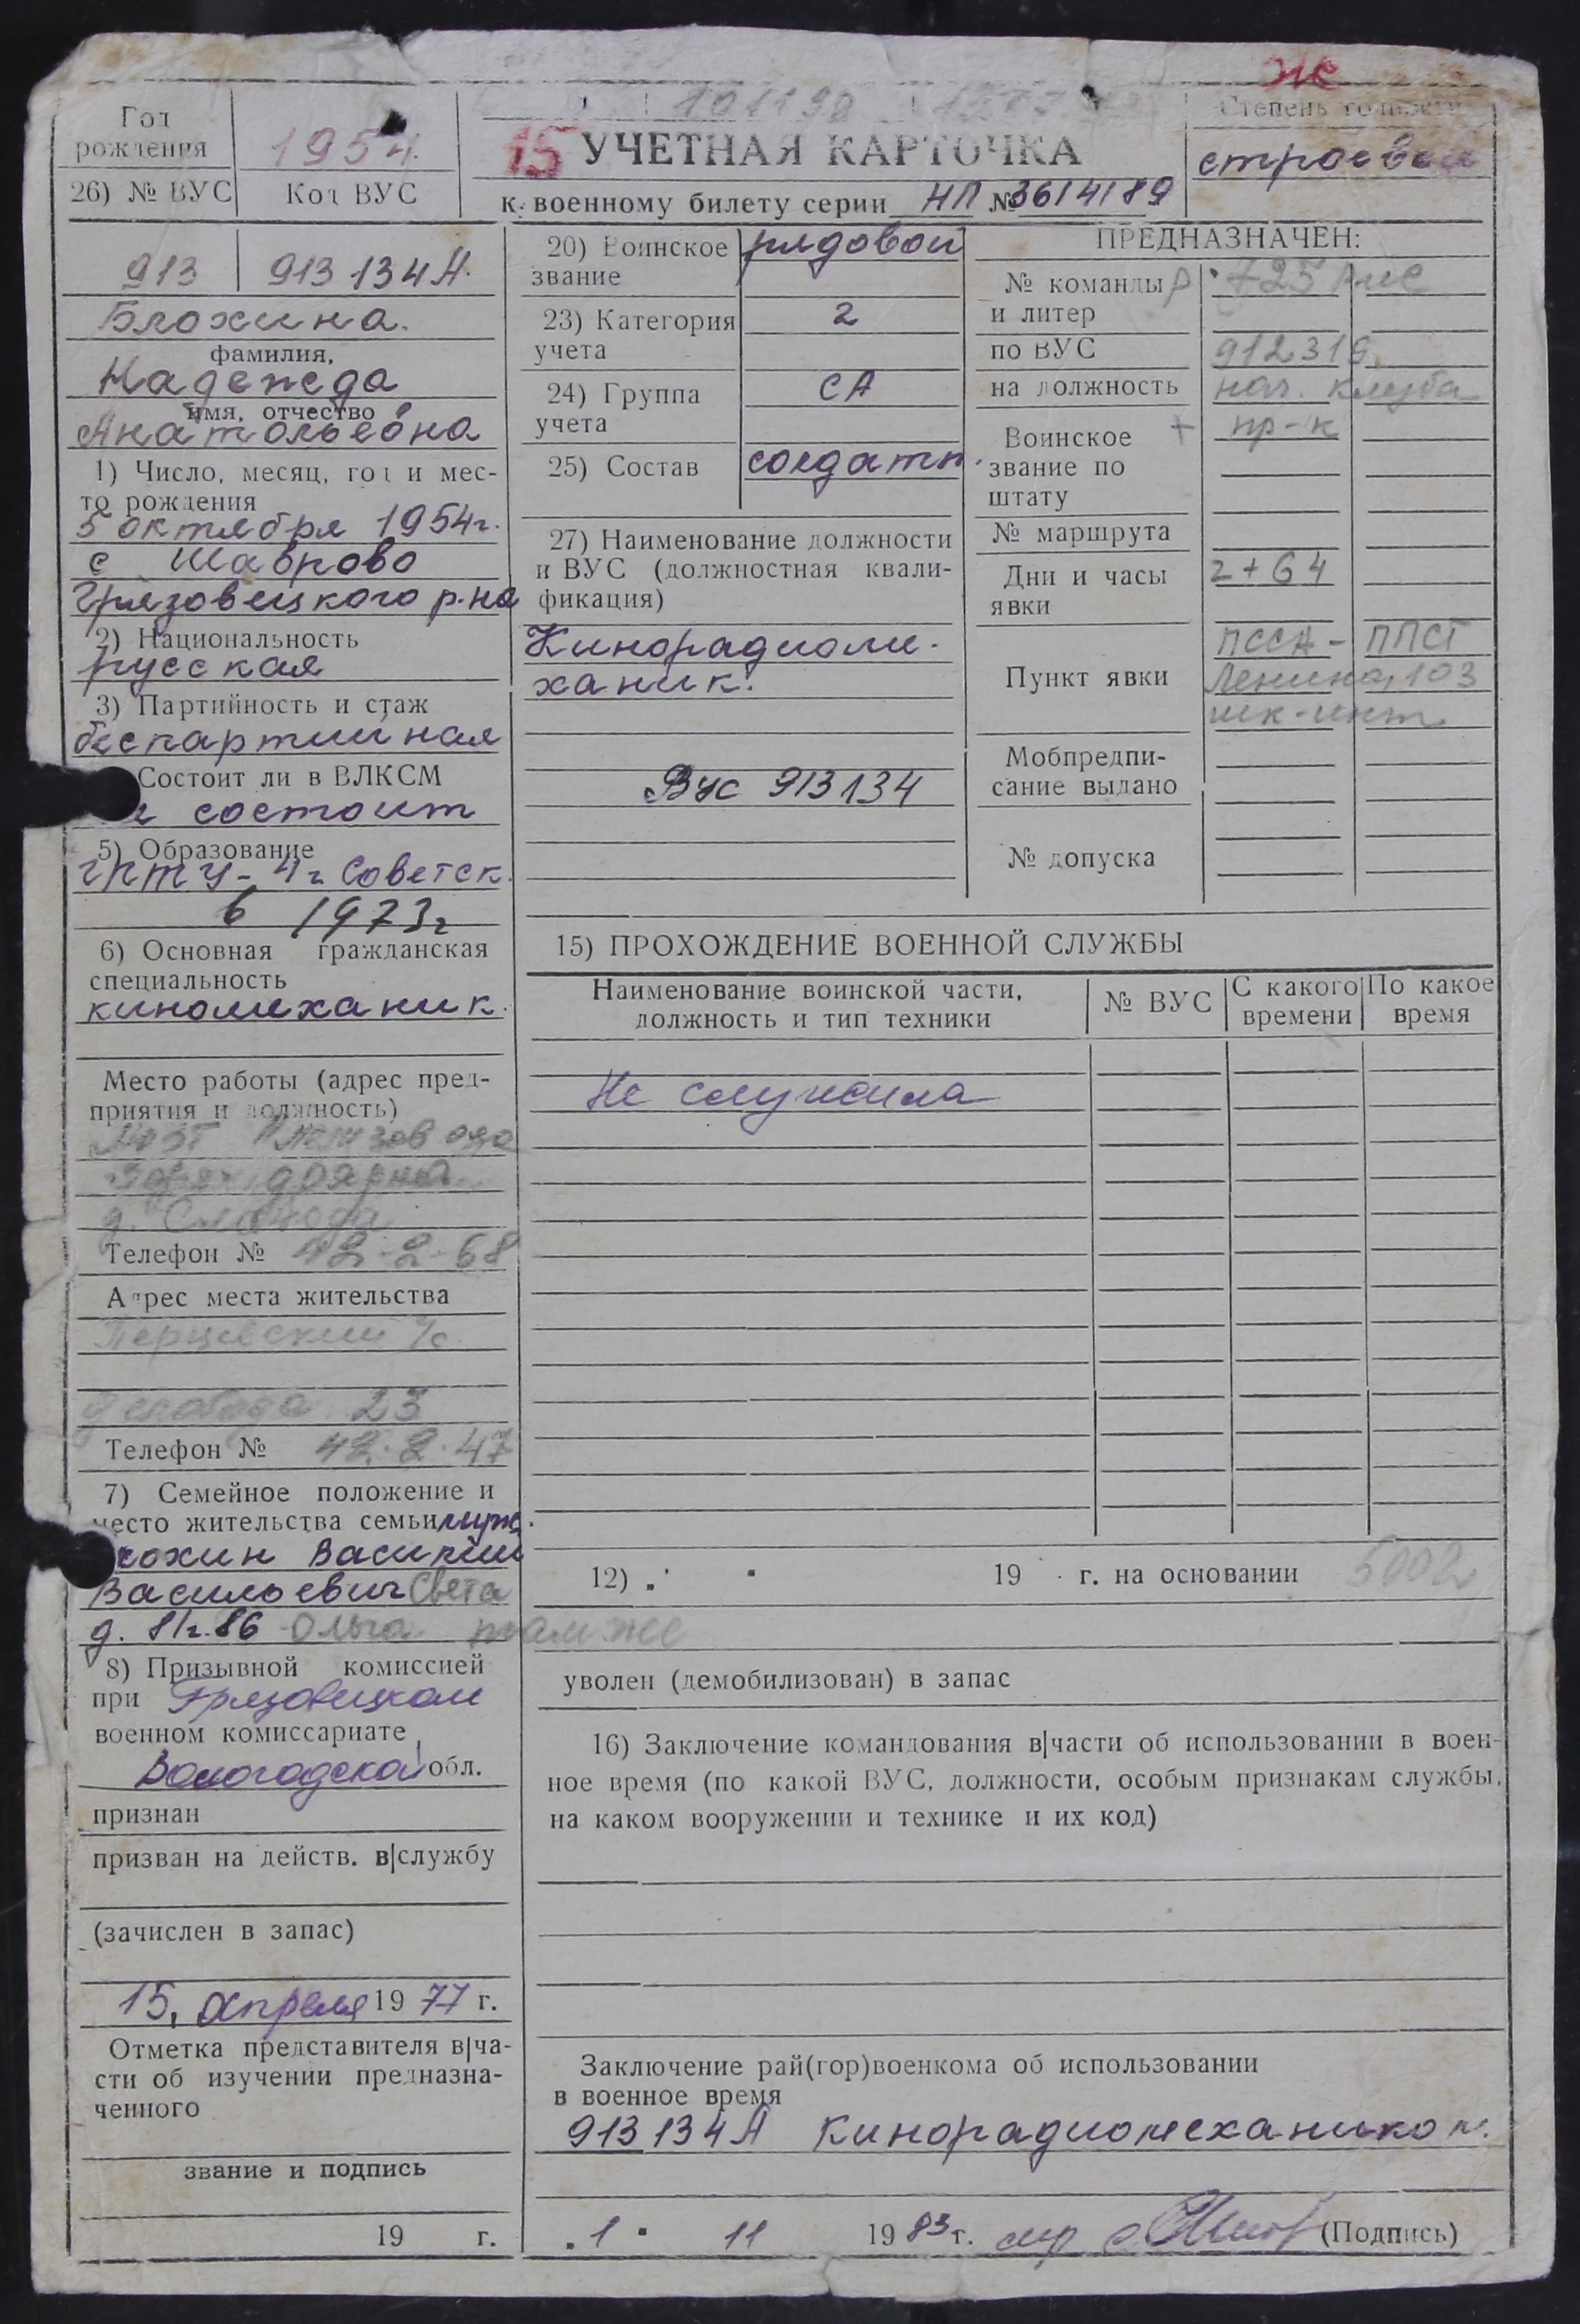 Же
Год
рождения
1954.
26) № ВУС
Код ВУС
101198
15 УЧЕТНАЯ КАРТОЧКА
к военному билету серии НП № 3614189
Степень годности
строевая
913
913134А.
Блохина.
фамилия,
Надежда
имя, отчество
Анатольевна
1) Число, месяц, год и мес-
то рождения
5 октября 1954г.
с Шаврово
Грязовецкого р-на
2) Национальность
русская
3) Партийность и стаж
беспартийная
Состоит ли в ВЛКСМ
не состоит
5) Образование
ГПТУ-4 г. Советск.
в 1973г
6) Основная гражданская
специальность
киномеханик.
Место работы (адрес пред-
приятия и должность)
доярка
д. Слобода
Телефон № 42-2-68
Адрес места жительства
Перцевский с/с.
д Слобода 23
Телефон № 42.2.47
7) Семейное положение и
место жительства семьи муж.
Блохин Василий
Васильевич Света
д. 81г. 86 Ольга там же
8) Призывной комиссией
при Грязовецком
военном комиссариате
Вологодской обл.
признан
призван на действ. в|службу
(зачислен в запас)
15. апреля 19 77 г.
Отметка представителя в|ча-
сти об изучении предназна-
ченного
звание и подпись
19 г.
20) Воинское звание
рядовой
23) Категория учета
2
24) Группа учета
СА
25) Состав
солдатск.
27) Наименование должности
и ВУС (должностная квали-
фикация)
Кинорадиоме-
ханик.
Вус 913134
ПРЕДНАЗНАЧЕН:
№ команды и литер
Р 725
по ВУС
912316
на должность
нач. клуба
Воинское звание по штату
+ пр-к
№ маршрута
Дни и часы явки
2+64
Пункт явки
ПССА - ППСГ
Ленина, 103
шк-инт.
Мобпредпи-
сание выдано
№ допуска
15) ПРОХОЖДЕНИЕ ВОЕННОЙ СЛУЖБЫ
Наименование воинской части,
должность и тип техники
№ ВУС
С какого времени
По какое время
Не служила
12) " " 19 г. на основании 5002
уволен (демобилизован) в запас
16) Заключение командования в|части об использовании в воен-
ное время (по какой ВУС, должности, особым признакам службы,
на каком вооружении и технике и их код)
Заключение рай(гор)военкома об использовании
в военное время
913134А Кинорадиомехаником.
" 1 " 11 19 83 г. (Подпись)